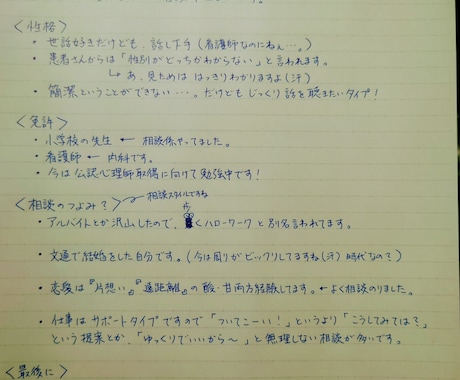 す。
<性格>
・世話好きだけども、話し下手(看護師なのにねぇ…。)
・患者さんからは「性別がどっちかわからない」と言われます。
↳あ、見ためははっきりわかりますよ(汗)
・簡潔ということができない…。だけどもじっくり話を聴きたいタイプ!
<免許>
・小学校の先生 ← 相談係やってました。
・看護師 ← 内科です。
・今は公認心理師取得に向けて勉強中です!
<相談のつよみ?> 相談スタイルですね
・アルバイトとか沢山したので、歩くハローワークと別名言われてます。
・文通で結婚をした自分です。(今は周りがビックリしてますね(汗)時代なの?)
・恋愛は『片想い』『遠距離』の酸・甘両方経験してます。←よく相談のりました。
・仕事はサポートタイプですので「ついてこーい!」というより「こうしてみては?」
という提案とか、「ゆっくりでいいから〜」と無理しない相談が多いです。
<最後に>